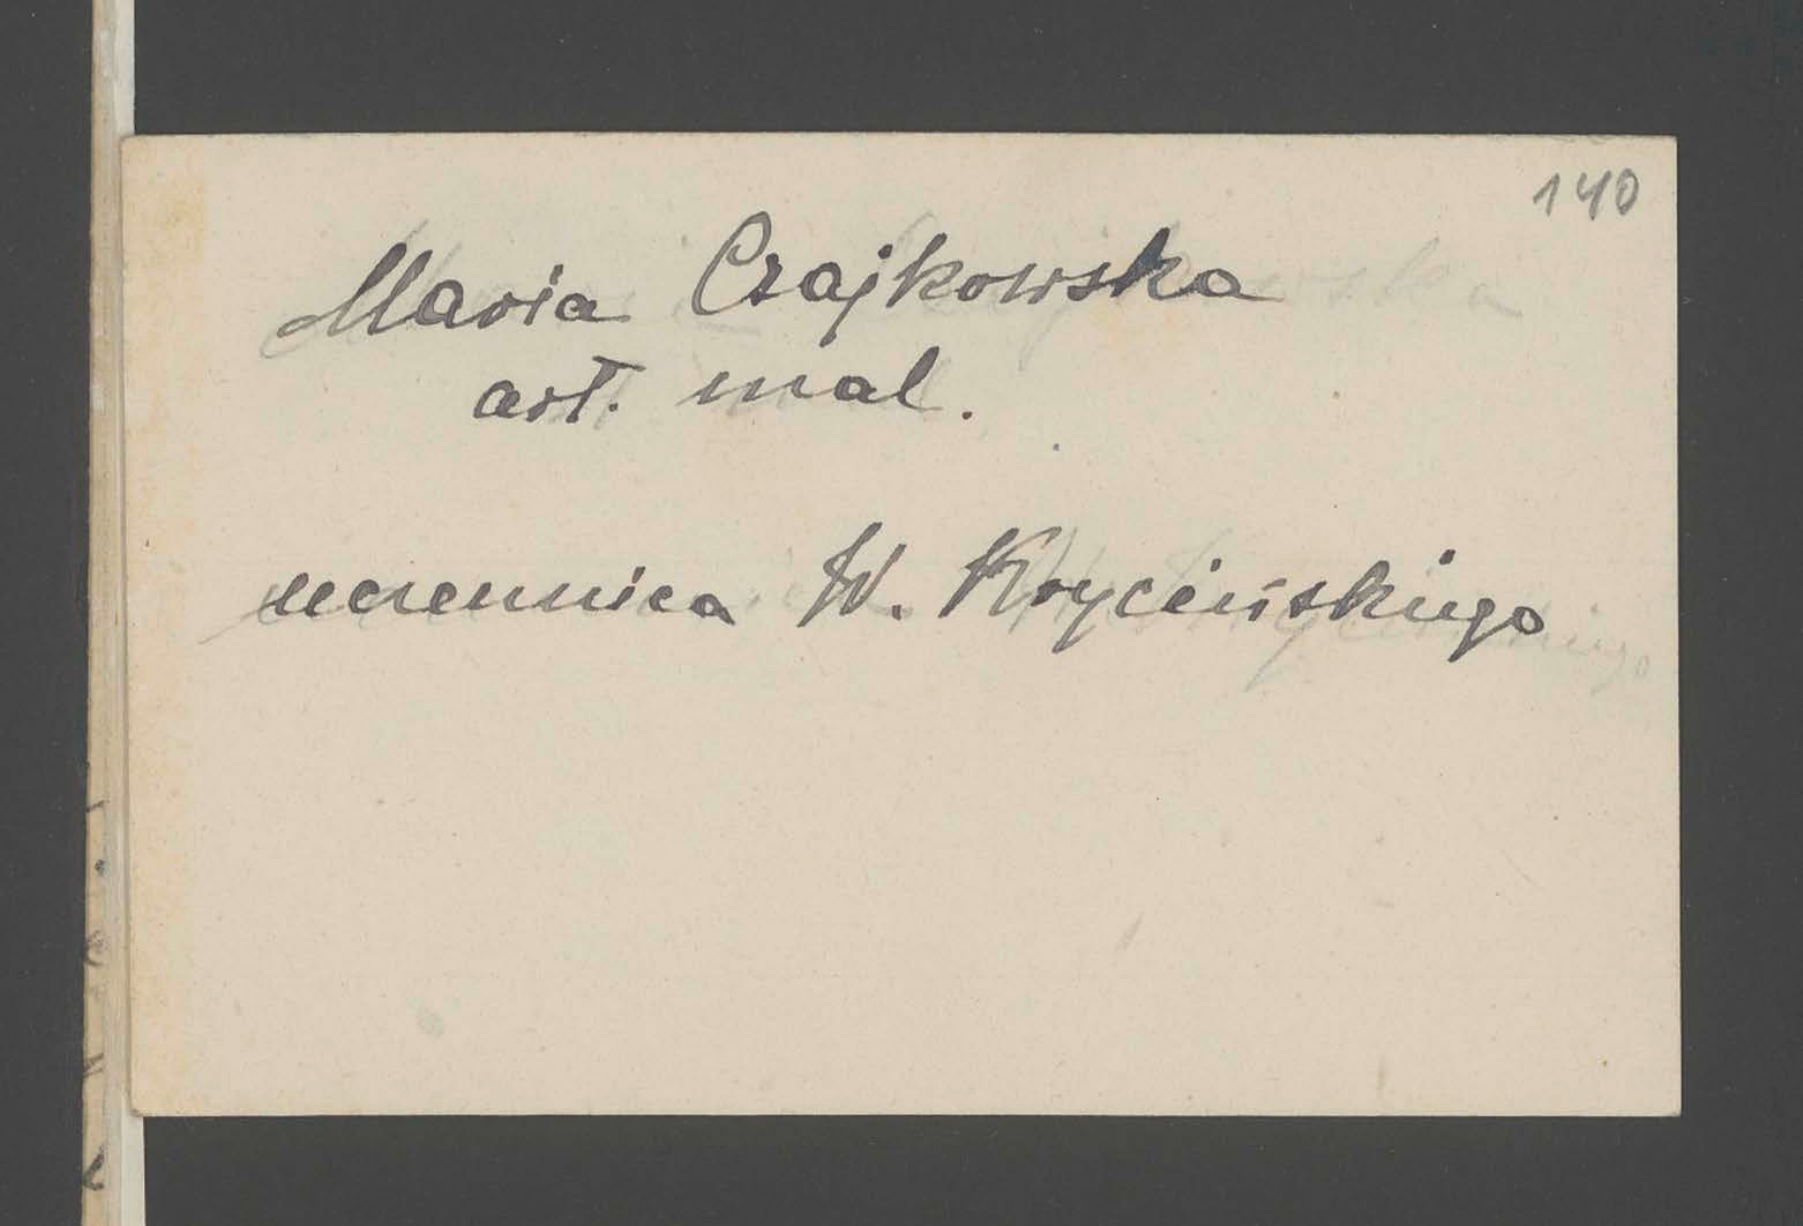 140
Maria Czajkowska
art. mal.
uczennica W. Krycińskiego